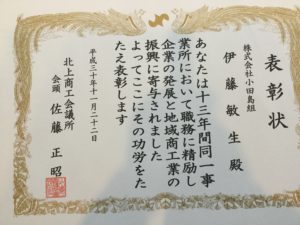 表彰状
株式会社小田島組
伊藤敏生殿
あなたは十三年間同一事
業所において職務に精励し
企業の発展と地域商工業の
振興に寄与されました
よってここにその功労をた
たえ表彰します
平成三十年十一月二十二日
北上商工会議所
会頭 佐藤正昭